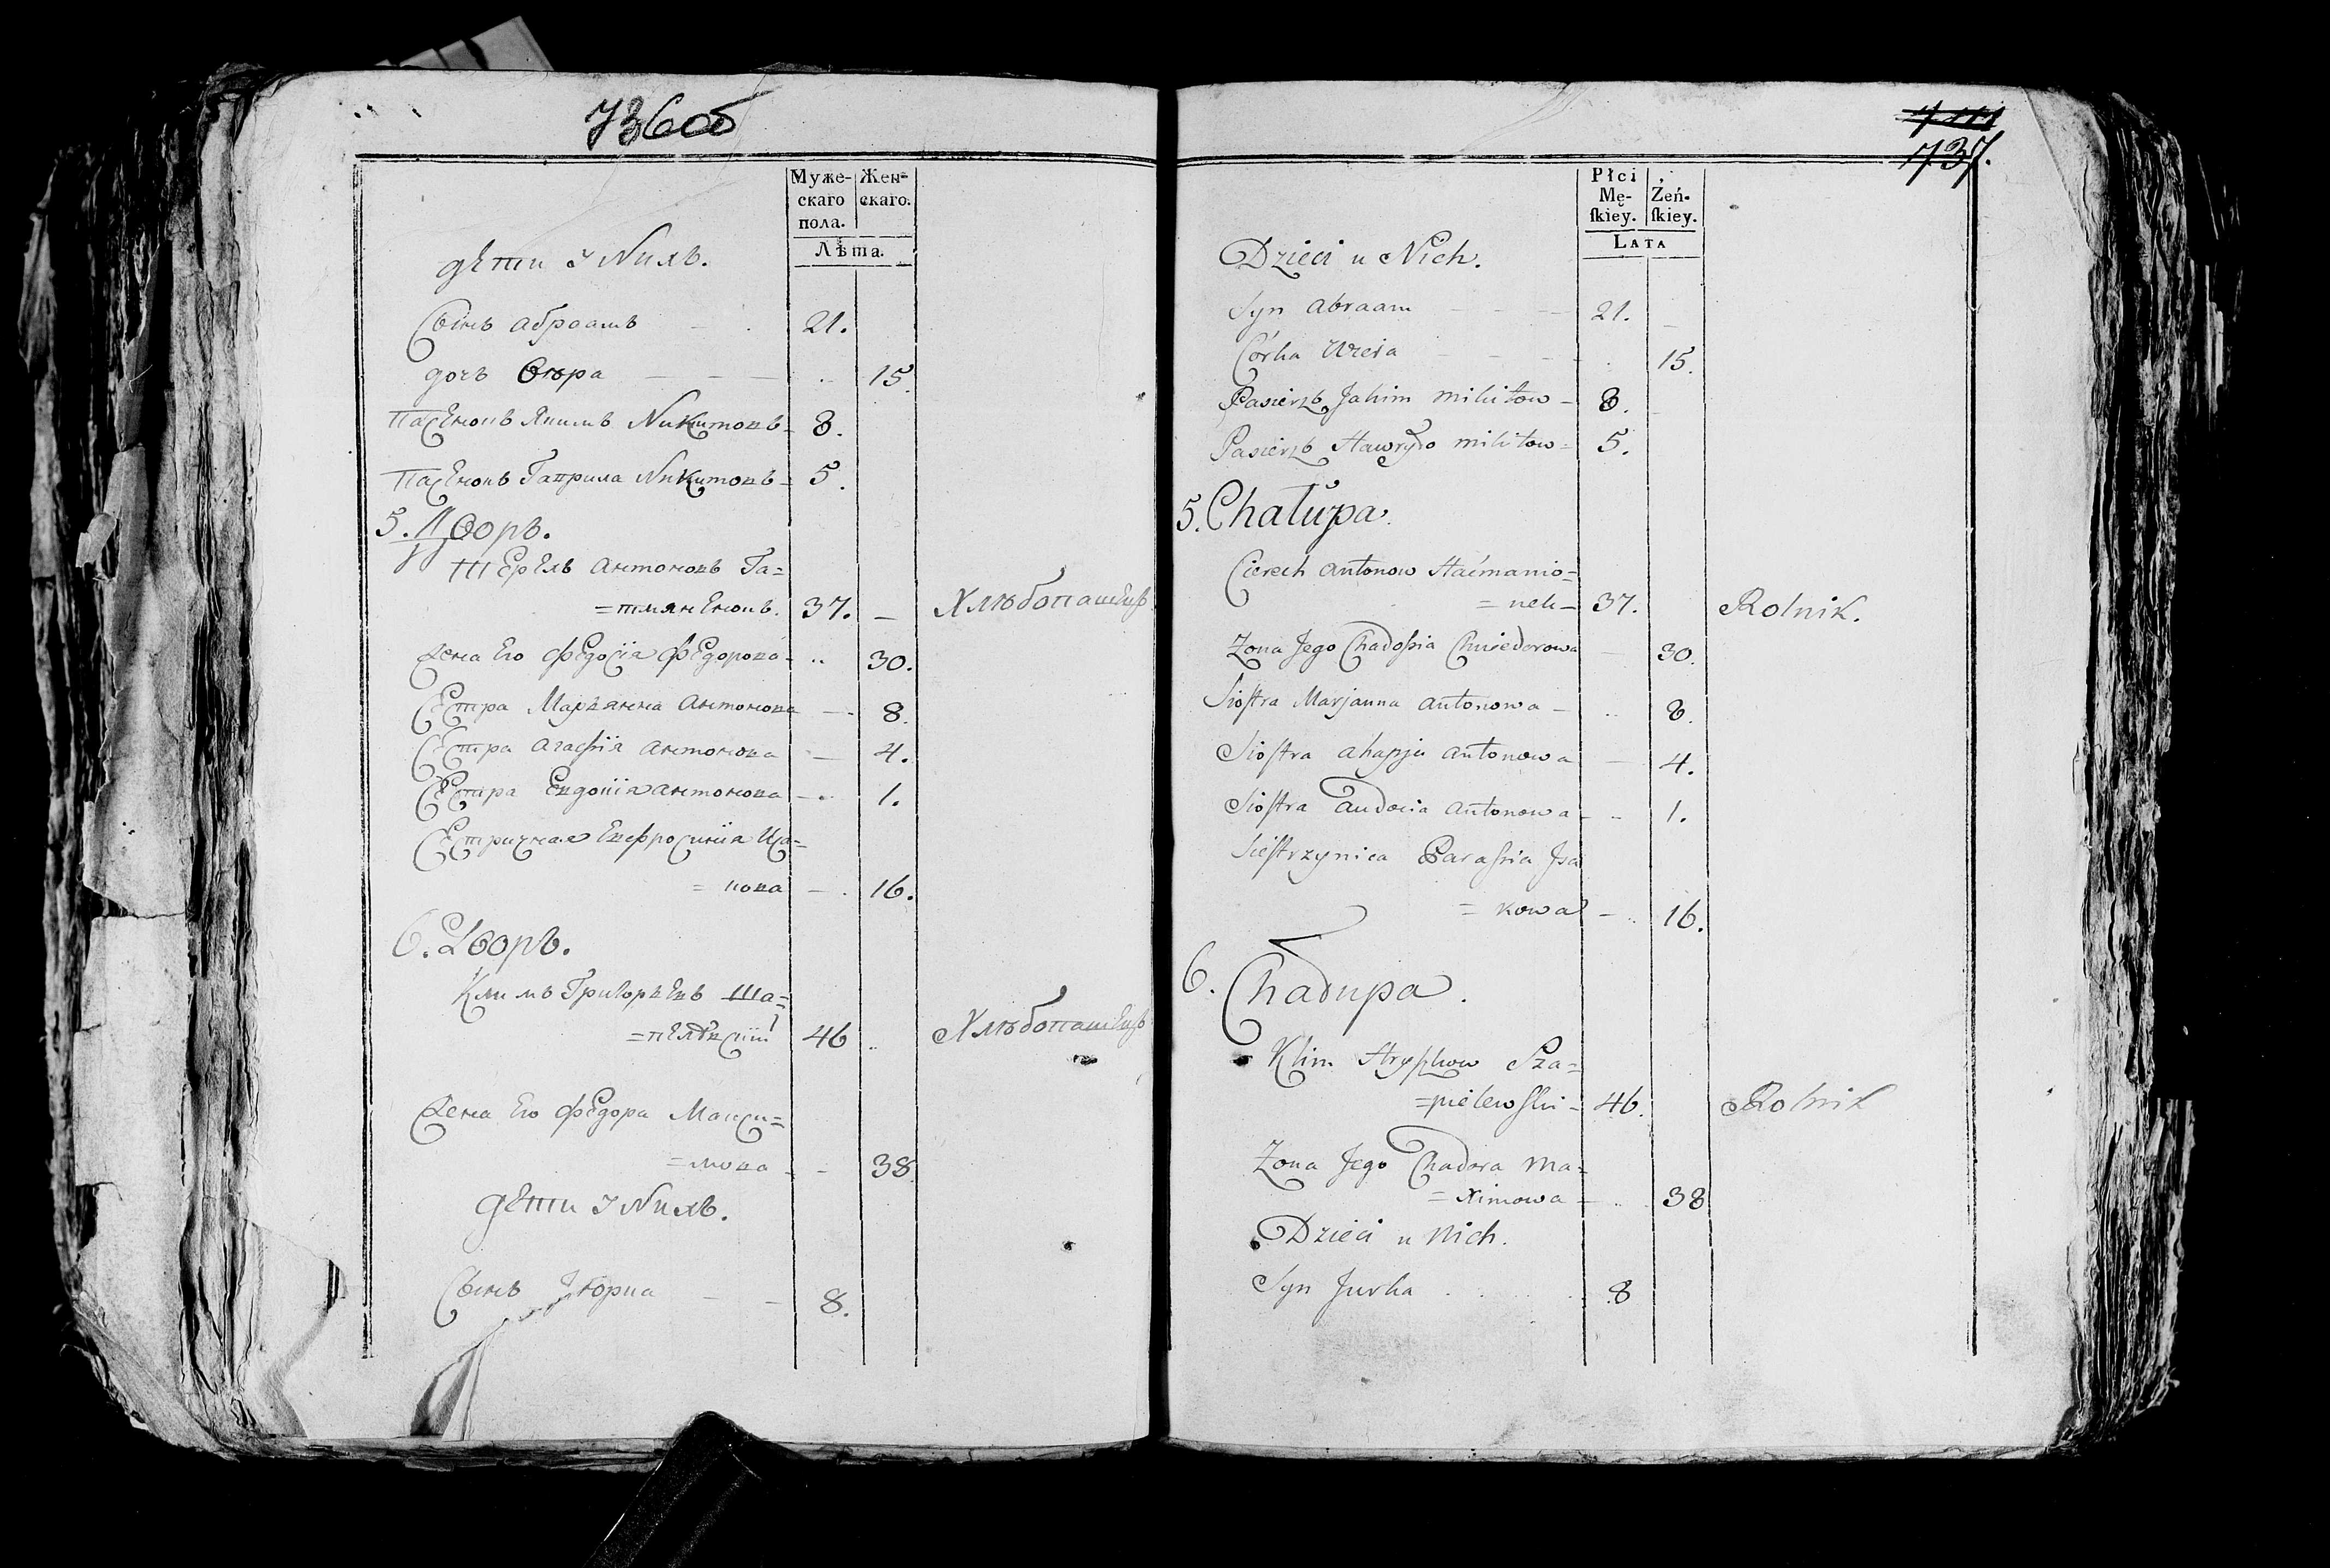 736об
Муже-
скаго
пола.
Жен-
скаго.
Лѣта.
дети у Нихъ.
Сынъ абраамъ 21.
дочь Ѳѣра 15.
Пасенокъ Якимъ Никитовъ 8.
Пасенокъ Гаврила Никитовъ 5.
5. Дворъ.
Антоновъ Га=
37. Хлѣбопашецъ
Жена Его Федосія Федорова 30.
Сестра Марьянна Антонова 8.
Сестра Агафія Антонова 4.
Сестра Евдокія Антонова 1.
Сестричная Евфросинія Иса=
=кова 16.
6. Дворъ.
Климъ Григорьевъ Ша=
=пелевскій 46 Хлѣбопашецъ
Жена Его Федора Макси=
=мова 38.
дети у Нихъ.
Сынъ 8.
737.
Płci
Mę-
ſkiey.
Żeń-
ſkiey.
Lata
Dzieci u Nich.
Syn Abraam 21.
Córka 15.
Pasierzb Jakim Mikitow 8.
Pasierzb Hawryło Mikitow 5.
5. Chałupa.
Antonow Haćmanio=
=nek 37. Rolnik.
Żona Jego Chadoſsia Chwiedorowa 30.
Sioſtra Marjanna Antonowa 8.
Sioſtra Ahapja Antonowa 4.
Sioſtra Audocia Antonowa 1.
Sieſtrzynica Paraſsia Jsa
=kowa 16.
6. Chałupa.
Klim Sza=
=pielewſki 46. Rolnik
Żona Jego Chadora Ma=
=ximowa 38
Dzieci u Nich.
Syn Jurka 8